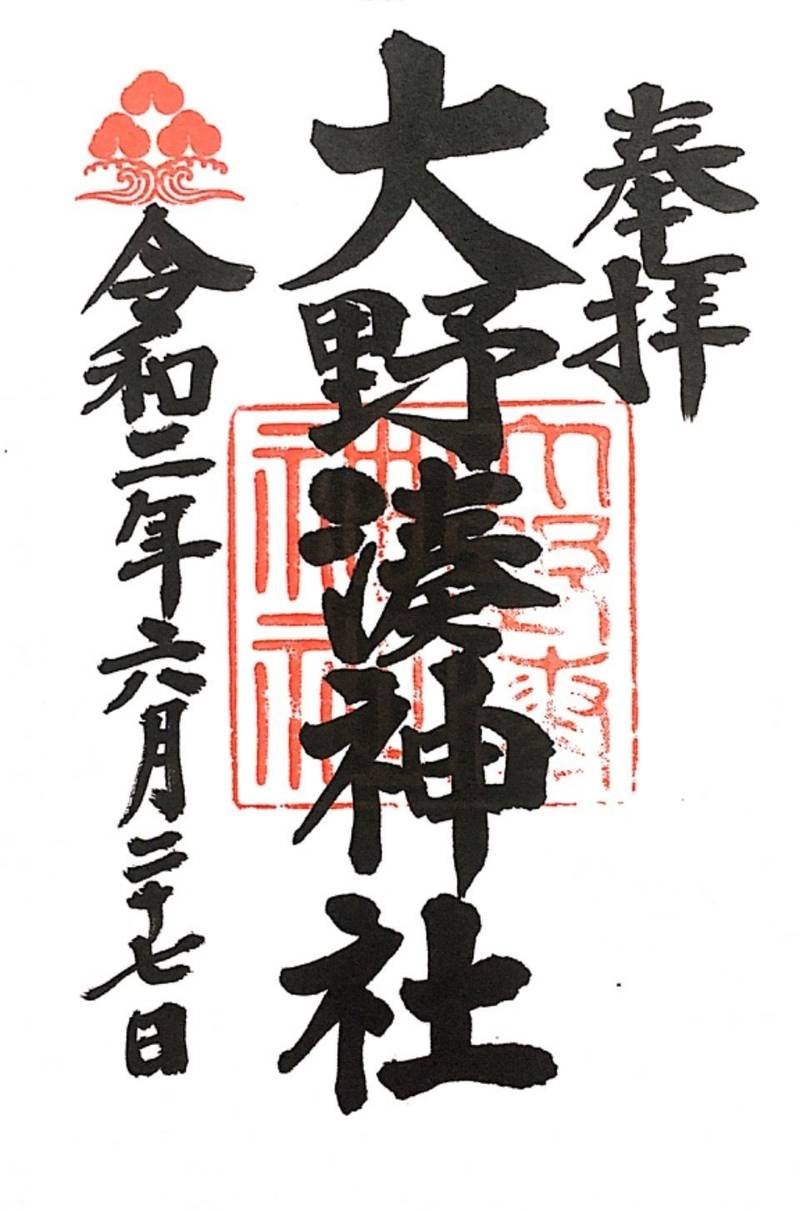 奉拝
大野湊神社
大野湊神社
令和二年六月二十七日